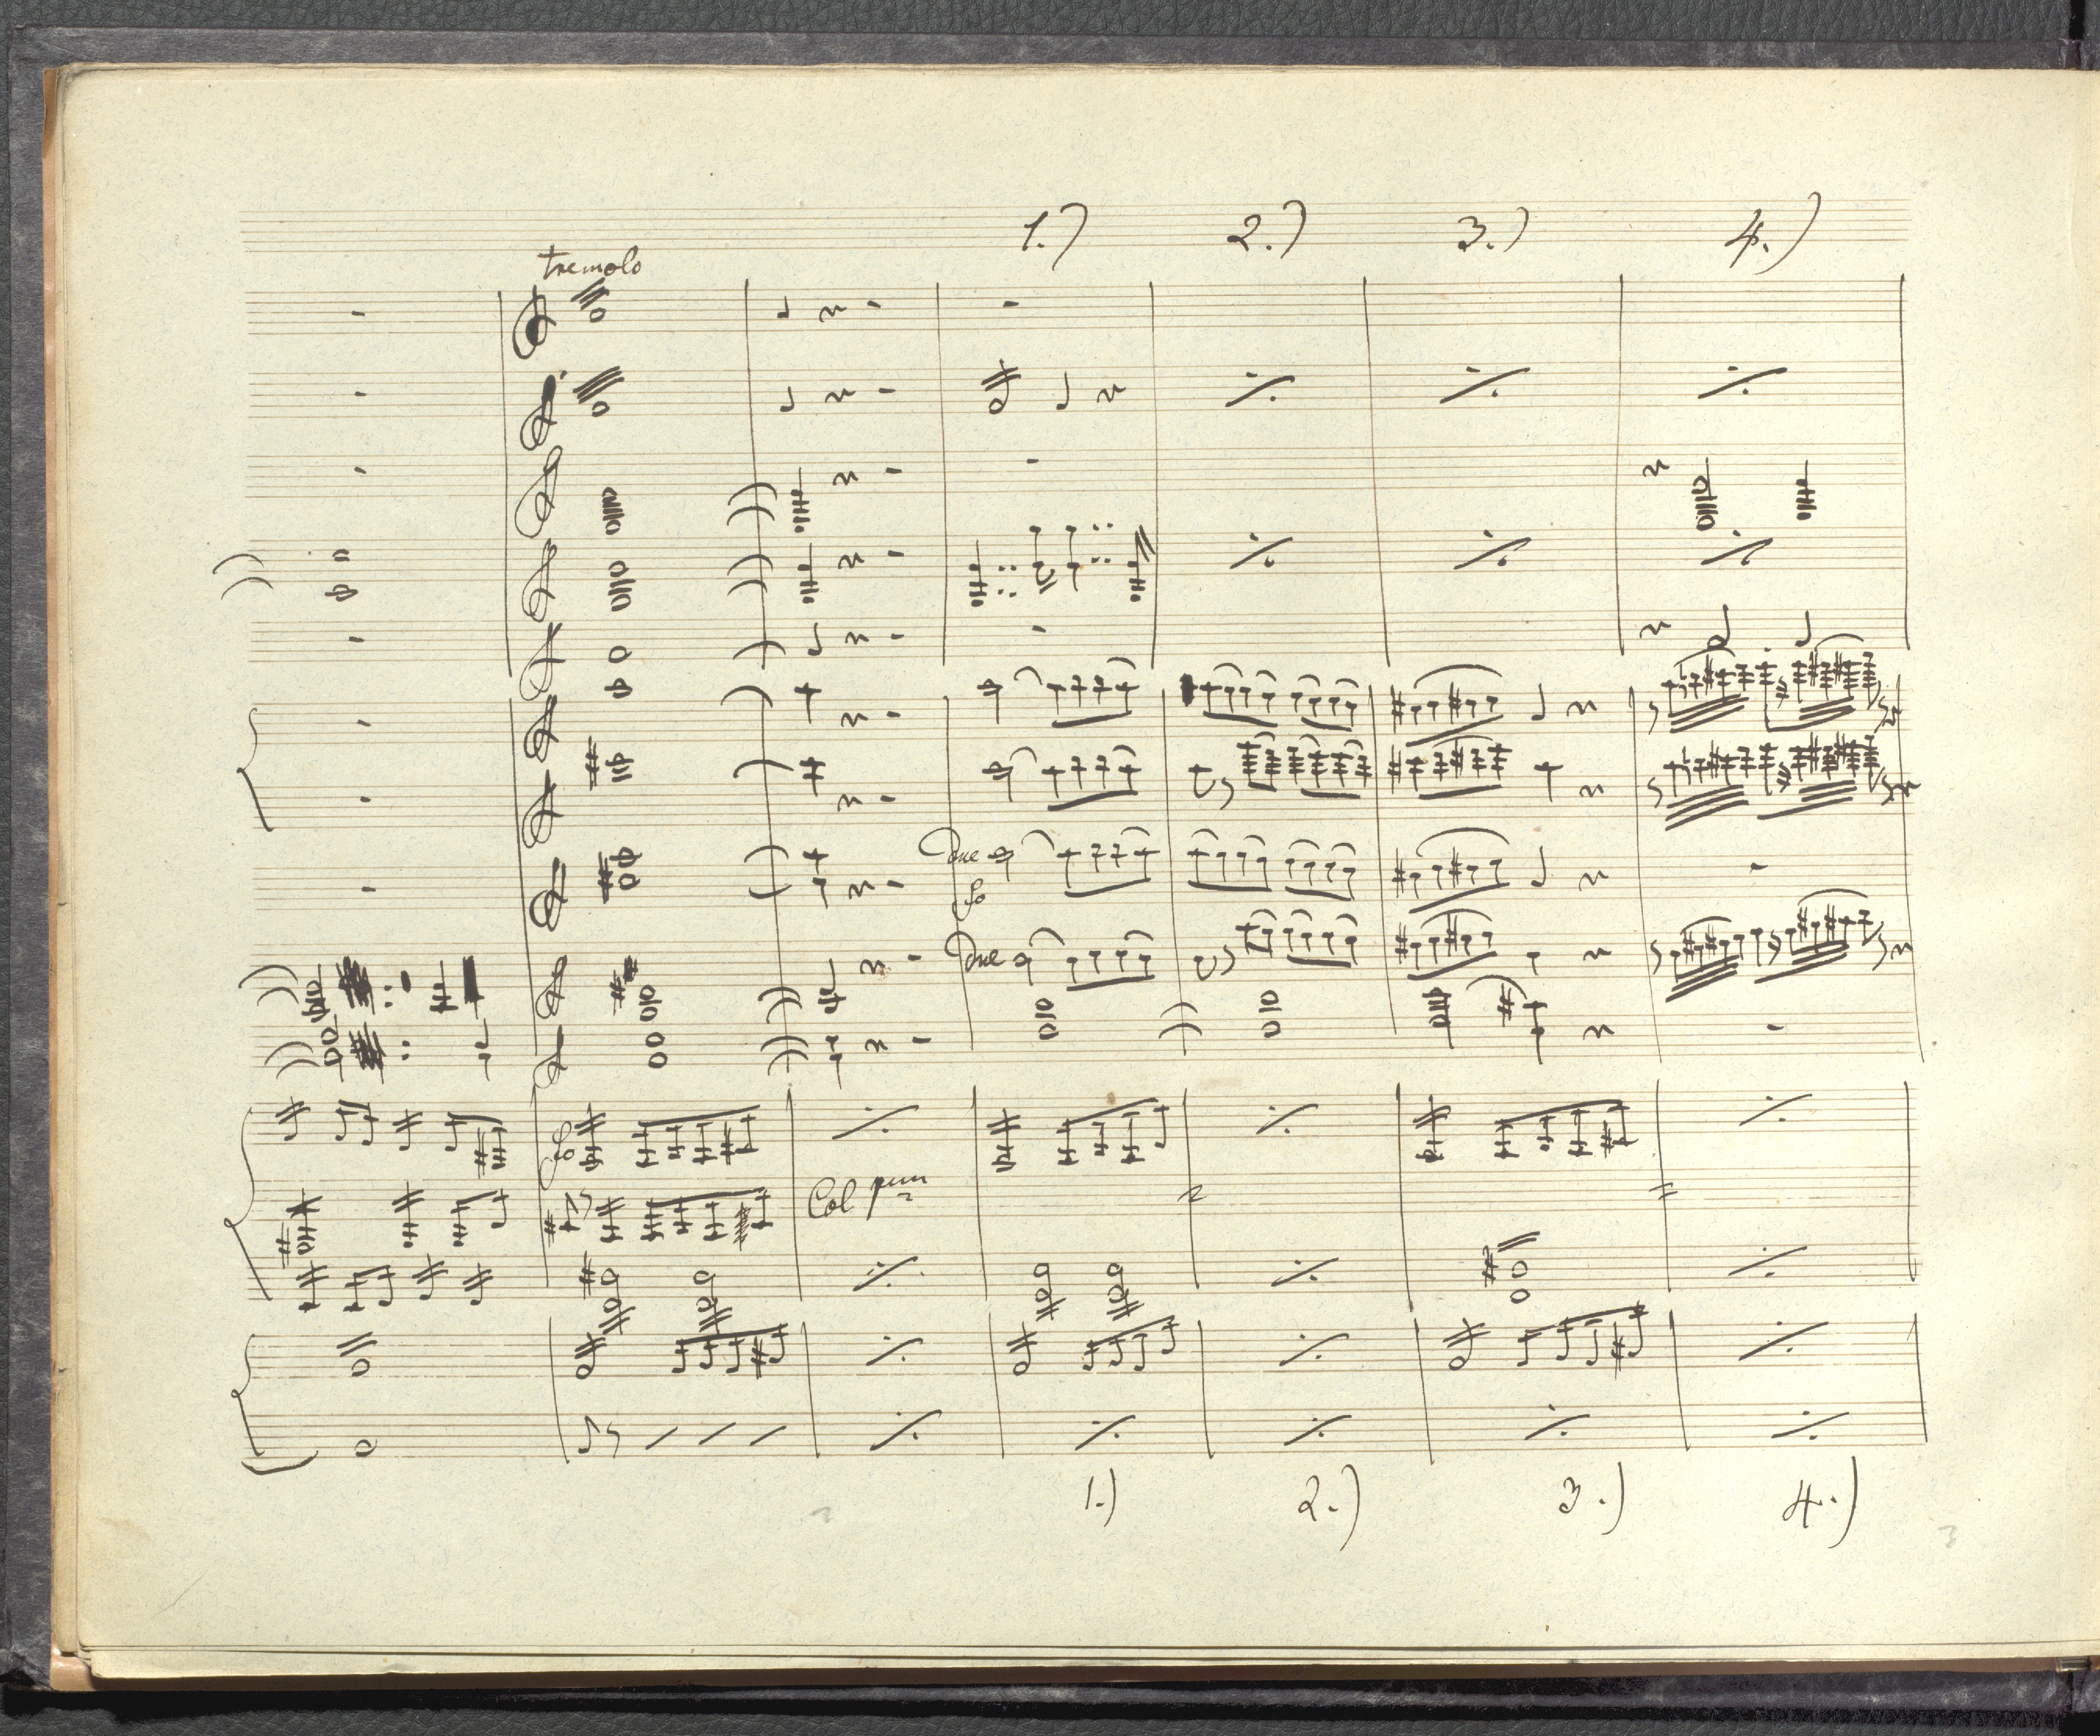 1.) 2.) 3.) 4.)
tremolo
Due
fo
Due
fo
Col pmo
1.) 2.) 3.) 4.)
3